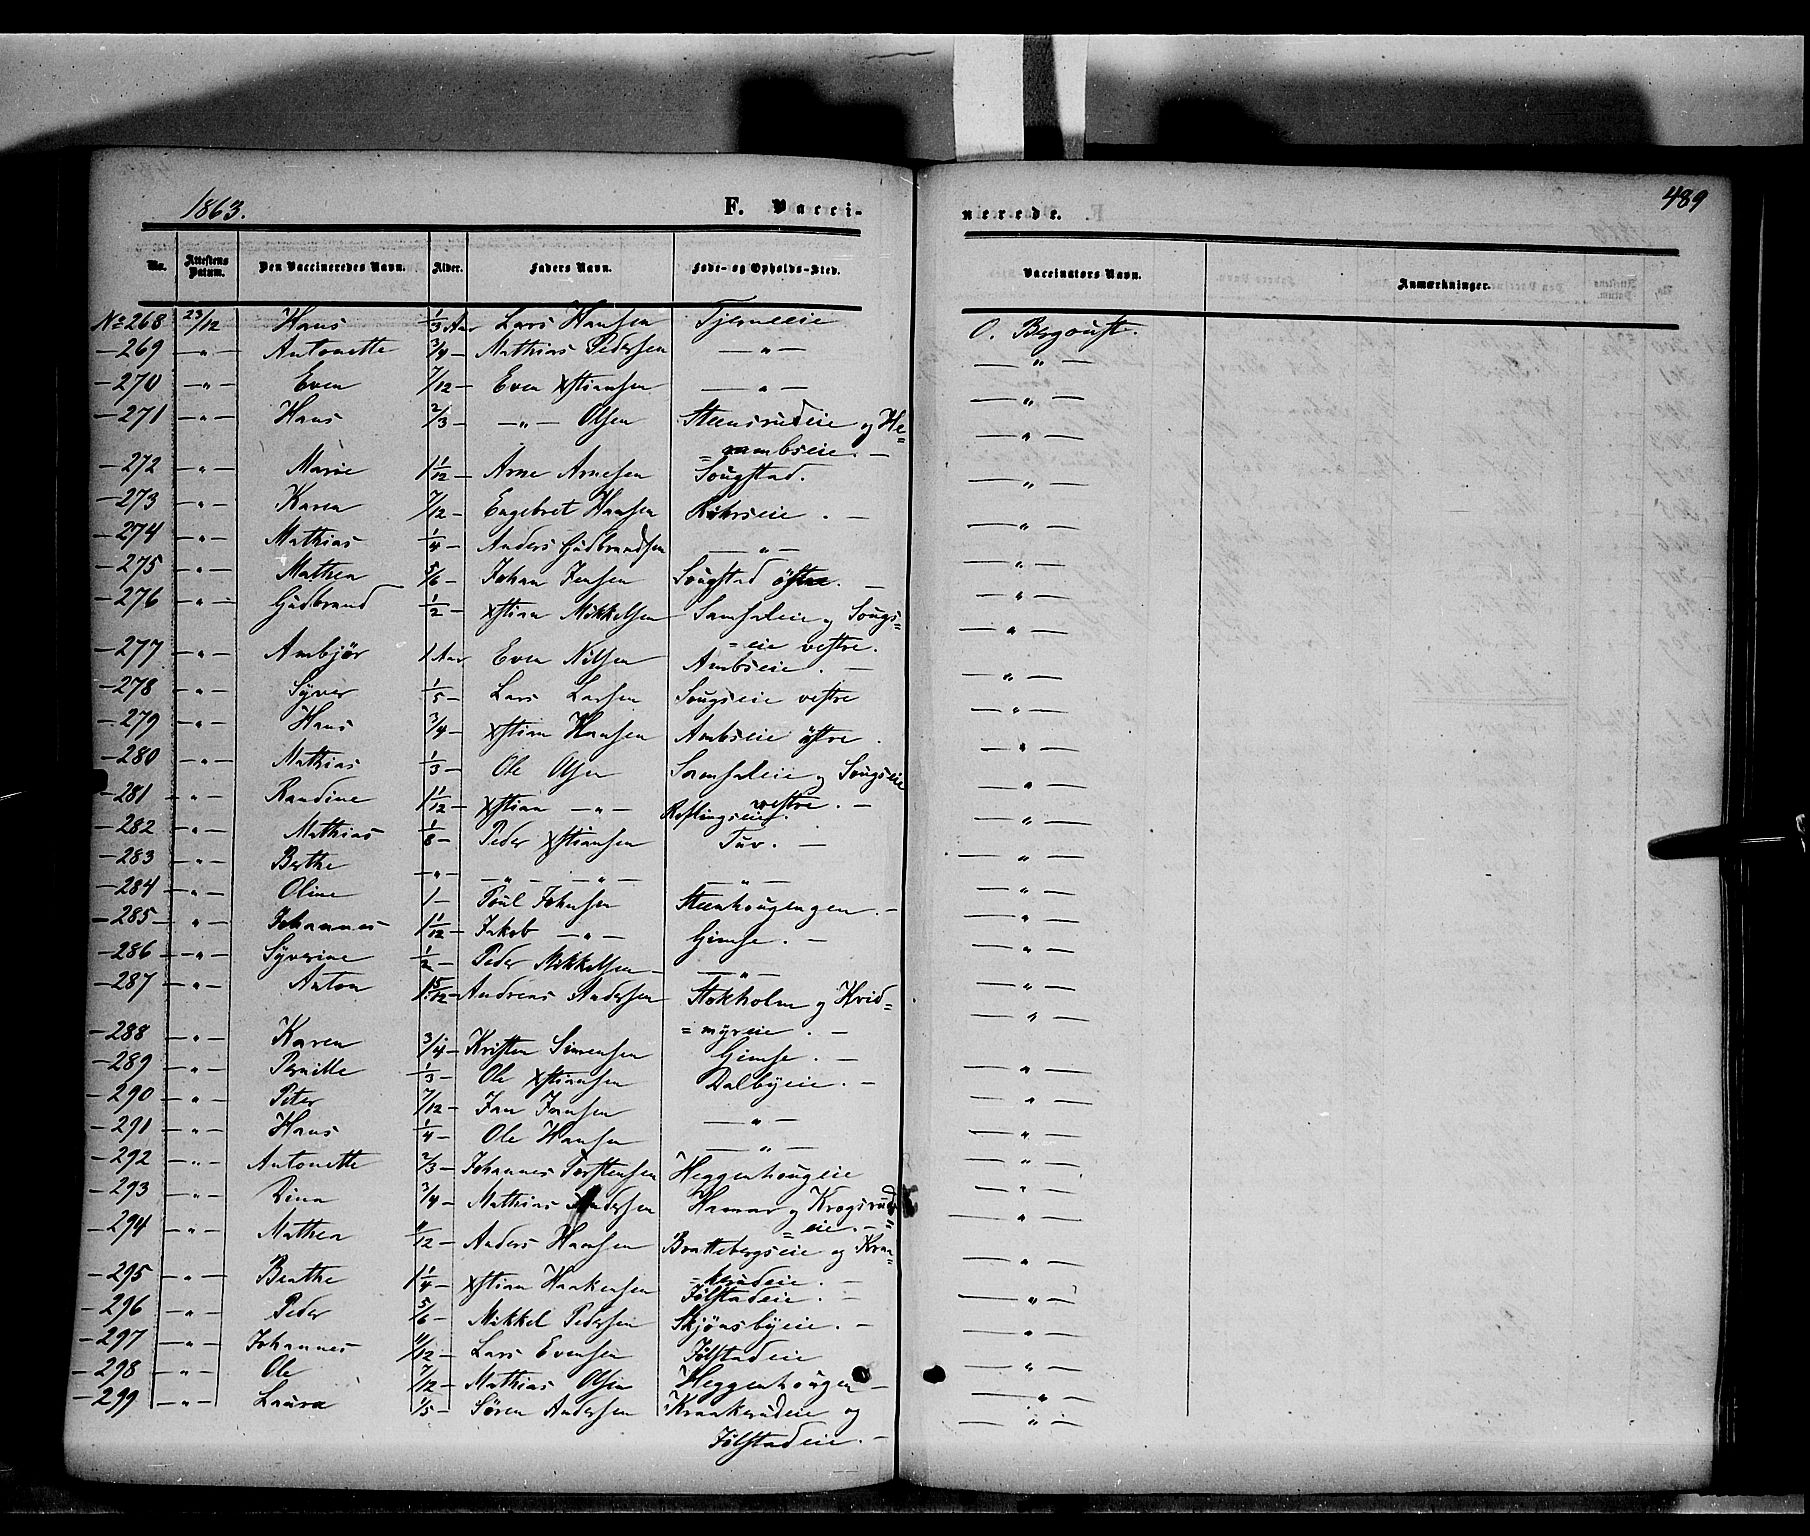 1863.
F. Vacci-
nerede.
489
No.
Attestens Datum.
Den Vaccineredes Navn.
Alder.
Faders Navn.
Føde- og Opholds-Sted.
Vaccinators Navn.
Anmærkninger.
No 268 23/12 Hans 1/3 Aar Lars Hansen Tjerneeie O.
— 269 — " — Antonette 3/4 — Mathias Pedersen — " — — " —
— 270 — " — Even 7/12 — Even Xstiansen — " — — " —
— 271 — " — Hans 2/3 — " — Olsen Steensrudeie og He= — " —
= ambseie. —
— 272 — " — Marie 1 1/12 — Arne Arnesen Sougstad. — " —
— 273 — " — Karen 7/12 — Engebret Hansen Rohrseie. — — " —
— 274 — " — Mathias 1/4 — Anders Gudbrandsen — " — — " —
— 275 — " — Mathea 5/6 — Johan Jensen Sougstad östre. — — " —
— 276 — " — Gudbrand 1/2 — Xstian Mikkelsen Samsaleie og Sougs= — " —
= eie vestre.
— 277 — " — Ambjör 1 Aar Even Nilsen Ambseie. — — " —
— 278 — " — Syver 1/5 — Lars Larsen Sougseie vestre — " —
— 279 — " — Hans 3/4 — Xstian Hansen Ambseie östre. — " —
— 280 — " — Mathias 1/3 — Ole Olsen Samsaleie og Sougseie — " —
vestre. —
— 281 — " — Randine 1 1/12 — Xstian — " — Reflingseie. — " —
— 282 — " — Mathias 1/8 — Peder Xstiansen Tuv. — — " —
— 283 — " — Berthe — " — — " — — " — — " — — " —
— 284 — " — Oline 1 — Poul Johnsen Steenhougengen. — — " —
— 285 — " — Johannes 1 1/12 — Jakob — " — Gimse. — — " —
— 286 — " — Syverine 1/2 — Peder Mikkelsen — — " — — " —
— 287 — " — Anton 1 5/12 — Andreas Andersen Stokholm og Hvid= — " —
= myreie. —
— 288 — " — Karen 3/4 — Kristen Simensen Gimse. — — " —
— 289 — " — Pernille 1/3 — Ole Xstiansen Dalbyeie. — — " —
— 290 — " — Peter 7/12 — Jan Jansen — " — — " —
— 291 — " — Hans 1/4 — Ole Hansen — " — — " —
— 292 — " — Antonette 2/3 — Johannes Torstensen Heggenhougeie — " —
— 293 — " — Dina 3/4 — Mathias Andersen Hamar og Krogsrud= — " —
= eie. —
— 294 — " — Mathea 11/12 — Anders Hansen Brattebergseie og Kraa= — " —
= kerudeie. —
— 295 — " — Beathe 1 1/4 — Xstian Haakensen Jölstadeie. — — " —
— 296 — " — Peder 5/6 — Mikkel Pedersen Skjönsbyeie. — — " —
— 297 — " — Johannes 11/12 — Lars Evensen Jölstadeie — " —
— 298 — " — Ole 7/12 — Mathias Olsen Heggenhougen — — " —
— 299 — " — Laura 1/5 — Søren Andersen Kraakerudeie og — " —
Jölstadeie. —